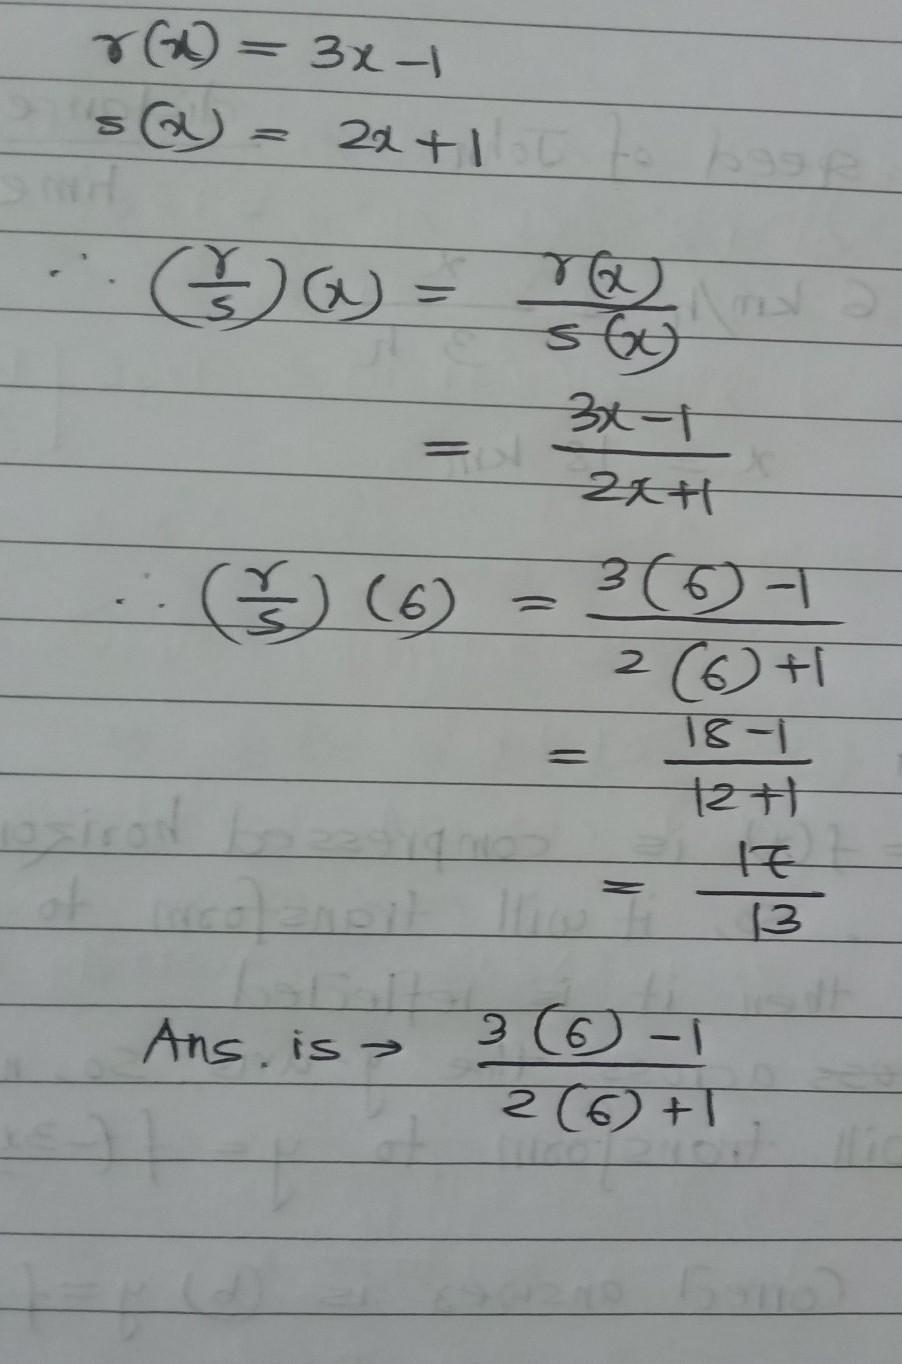 r(x) = 3x-1
s(x) = 2x+1
∴ (r/s)(x) = r(x)/s(x)
= (3x-1)/(2x+1)
∴ (r/s)(6) = (3(6)-1)/(2(6)+1)
= (18-1)/(12+1)
= 17/13
Ans. is → (3(6)-1)/(2(6)+1)